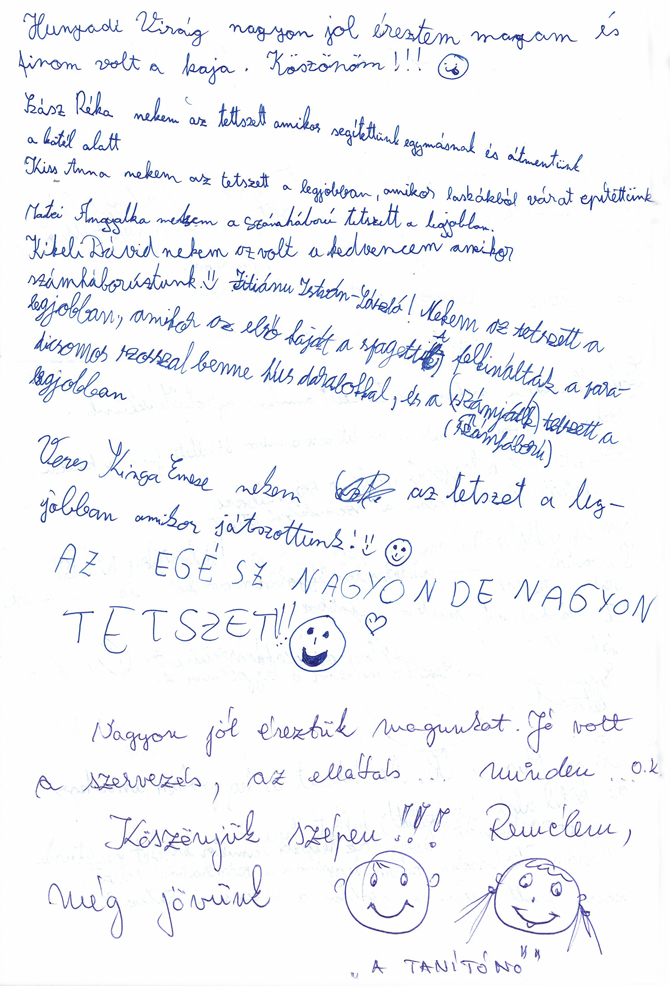 Hunyadi Virág nagyon jol éreztem magam és
finom volt a kaja. Köszönöm!!!
Szász Réka nekem az tettszett amikor segítettünk egymásnak és átmentünk
a kötél alatt
Kiss Anna nekem az tetszett a legjobban, amikor laskákból várat epítettünk
Matei Angyalka nekem a számháború tetszett a legjobban.
Kikeli Dávid nekem az volt a kedvencem amikor
számháborúztunk. István-László! Nekem az tetszett a
legjobban, amikor az első kaját a spagettit felkinálták a para-
dicsomos szosszal benne hus darabokkal, és a (számjáték) tetszett a
(számháború)
legjobban
Veres Kinga Emese nekem az letszet a leg-
jobban amikor játszottunk!
AZ EGÉSZ NAGYON DE NAGYON
TETSZET!!!
Nagyon jól éreztük magunkat. Jó volt
a szervezés, az ellátás ... minden ... O.K.
Köszönjük szépen!!! Remélem,
még jövünk
„A TANÍTÓNŐ"